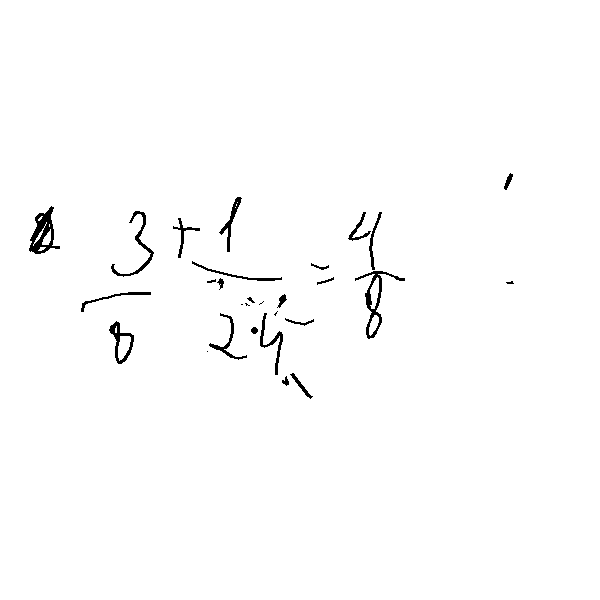 3/8 + 1/2·4 = 4/8